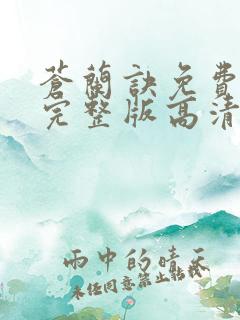 蒼蘭訣免費
完整版高清
雨中的晴天
未经同意禁止转载